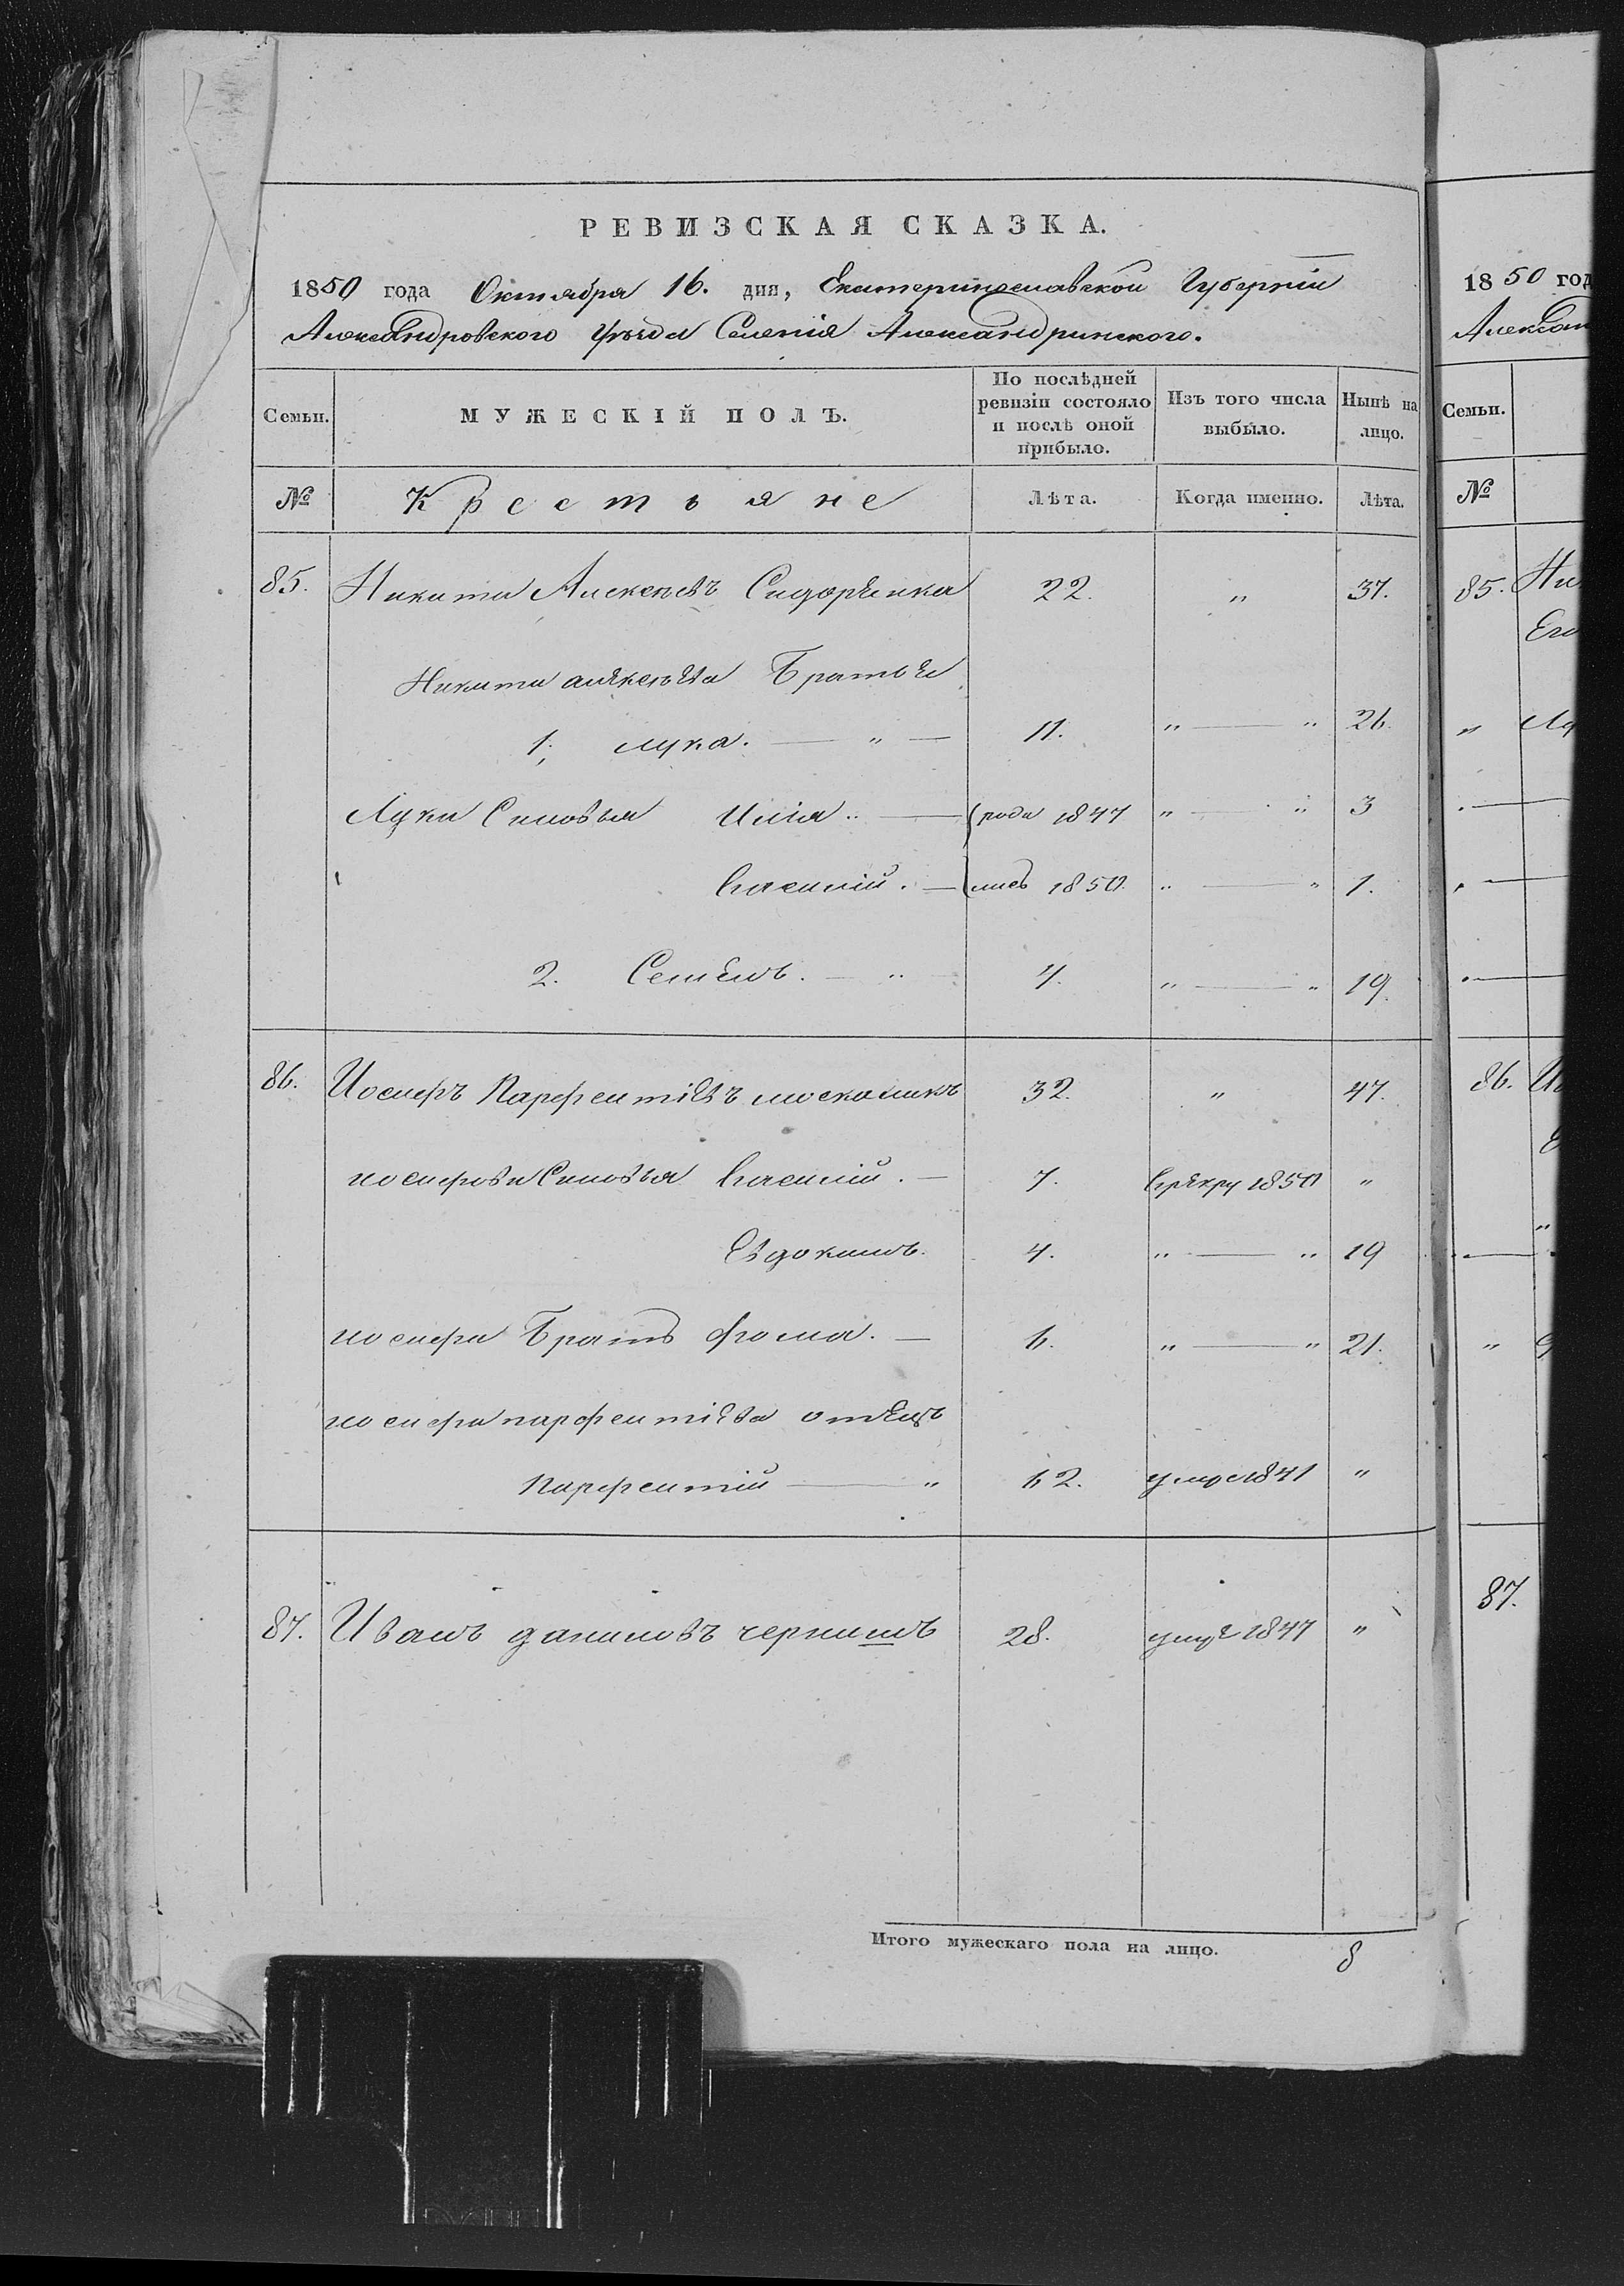 РЕВИЗСКАЯ СКАЗКА.
1850 года Октября 16. дня, Екатеринославской Губерніи
Александровского Уѣзда Селенія Александринского.
Семьи. МУЖЕСКІЙ ПОЛЪ. По послѣдней ревизіи состояло и послѣ оной прибыло. Изъ того числа выбыло. Нынѣ на лицо.
№ Крестьяне Лѣта. Когда именно. Лѣта.
85. Никита Алексѣевъ Сидоренка 22. „ 37.
Никиты алексѣева Братья
1. лука. — „ — 11. „ — „ 26.
Луки Синовья Илія.. — (роди 1847 „ — „ 3
Василій. — (лись 1850. „ — „ 1.
2. Семенъ. — „ 4. „ — „ 19.
86. Иосифъ Парфентіевъ москаликъ 32. „ 47.
иосифови Синовья Василій. — 7. Врекру 1850 „
Евдокимъ. 4. „ — „ 19
иосифа Братъ фома. — 6. „ — „ 21.
иосифа парфентіева отецъ
Парфентій — „ 62. умре 1841 „
87. Иванъ даниловъ чернишъ 28. умре 1847 „
Итого мужескаго пола на лицо. 8
1850 год
Алексан
Семьи.
№
85. Ни
Его
„ Лу
86. Ио
„
87.